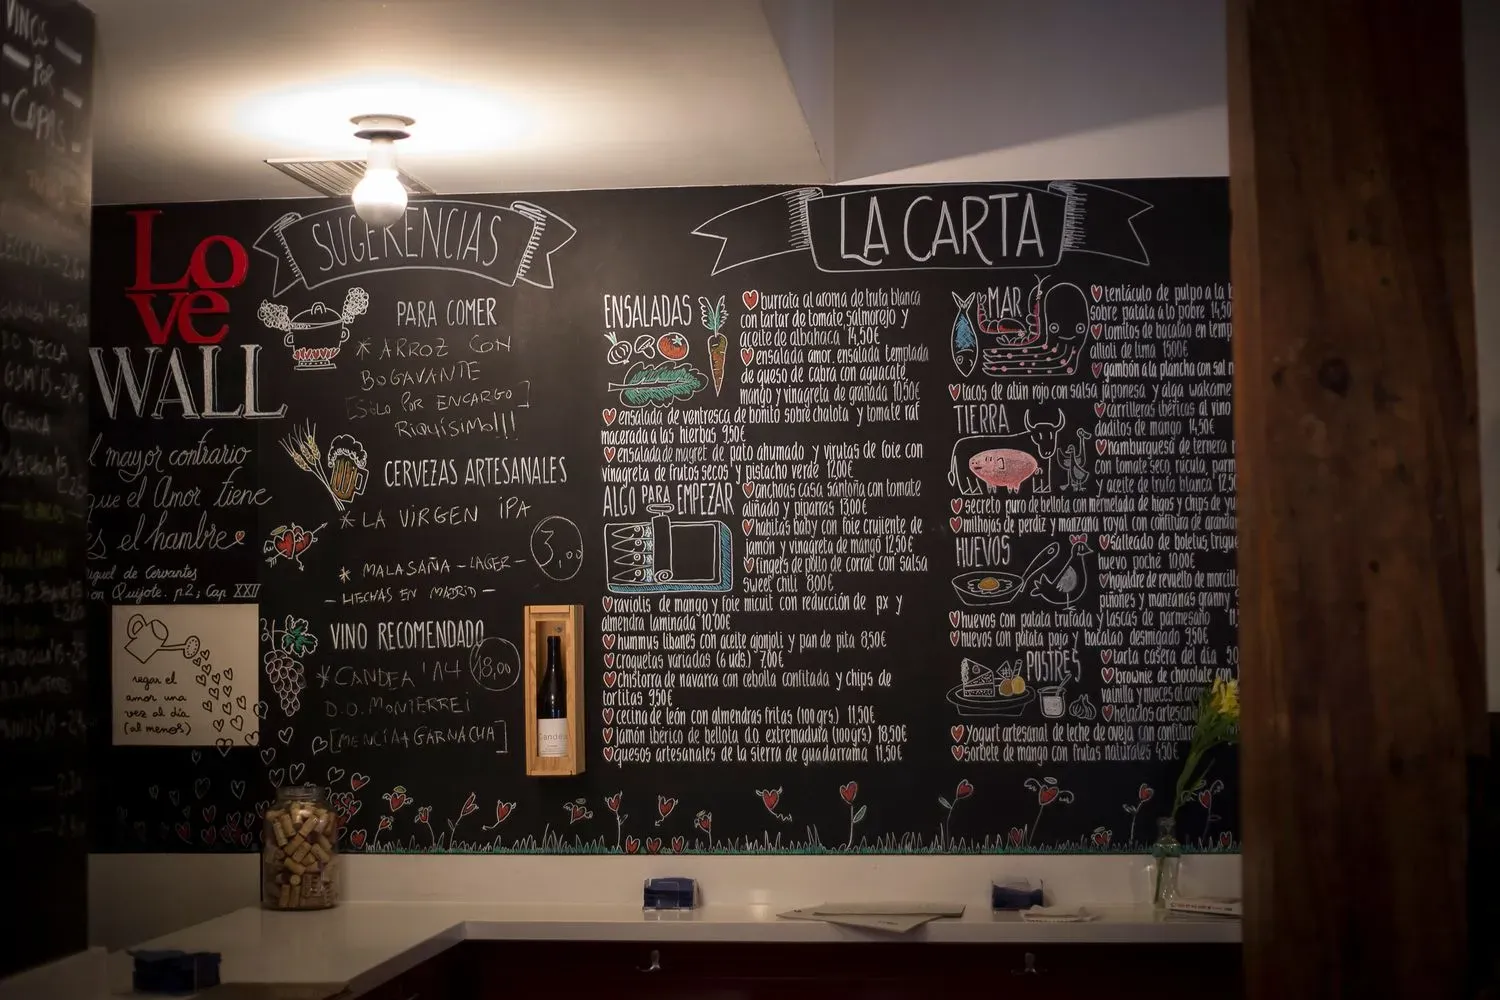 VINOS
POR
COPAS
LOVE
WALL
l mayor contrario
que el Amor tiene
es el hambre
iguel de Cervantes
on Quijote. p.2; Cap XXII
regar el
amor una
vez al día
(al menos)
SUGERENCIAS
PARA COMER
* ARROZ CON
BOGAVANTE
[SOLO POR ENCARGO]
RIQUÍSIMO!!!
CERVEZAS ARTESANALES
* LA VIRGEN IPA
3,00
* MALASAÑA - LAGER -
- HECHAS EN MADRID -
VINO RECOMENDADO
* CANDEA '14 18,00
D.O. MONTERREI
[MENCIA + GARNACHA]
LA CARTA
ENSALADAS
burrata al aroma de trufa blanca
con tartar de tomate, salmorejo y
aceite de albahaca 14,50€
ensalada amor. ensalada templada
de queso de cabra con aguacate,
mango y vinagreta de granada 10,50€
ensalada de ventresca de bonito sobre chalota y tomate raf
macerada a las hierbas 9,50€
ensalada de magret de pato ahumado y virutas de foie con
vinagreta de frutos secos y pistacho verde 12,00€
ALGO PARA EMPEZAR
anchoas casa santoña con tomate
aliñado y piparras 13,00€
habitas baby con foie crujiente de
jamón y vinagreta de mango 12,50€
fingers de pollo de corral con salsa
sweet chili 8,00€
raviolis de mango y foie micuit con reducción de px y
almendra laminada 10,00€
hummus libanés con aceite ajonjoli y pan de pita 8,50€
croquetas variadas (6 uds) 7,00€
chistorra de navarra con cebolla confitada y chips de
tortitas 9,50€
cecina de león con almendras fritas (100 grs) 11,50€
jamón ibérico de bellota d.o. extremadura (100 grs) 18,50€
quesos artesanales de la sierra de guadarrama 11,50€
MAR
tentáculo de pulpo a la b
sobre patata a lo pobre 14,50
lomitos de bacalao en temp
allioli de lima 15,00€
gambón a la plancha con sal n
tacos de atún rojo con salsa japonesa y alga wakame
TIERRA
carrilleras ibéricas al vino
daditos de mango 14,50€
hamburguesa de ternera
con tomate seco, rúcula, parm
y aceite de trufa blanca 12,50
secreto puro de bellota con mermelada de higos y chips de yu
milhojas de perdiz y manzana royal con confitura de arandan
HUEVOS
salteado de boletus, trigue
huevo poché 10,00€
hojaldre de revuelto de morcill
piñones y manzanas granny
huevos con patata trufada y lascas de parmesano 11,
huevos con patata paja y bacalao desmigado 9,50€
POSTRES
tarta casera del día 5,0
brownie de chocolate con
vainilla y nueces al aro
helados artesan
yogurt artesanal de leche de oveja con confitura
sorbete de mango con frutas naturales 4,50€